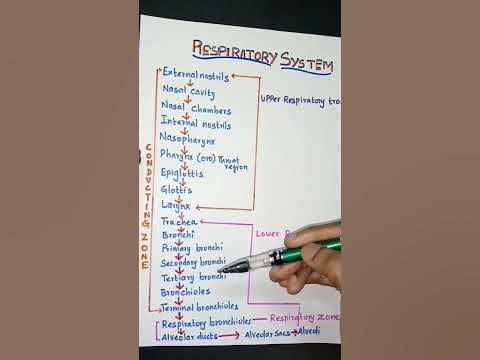 RESPIRATORY SYSTEM
External nostrils
Nasal cavity
Upper Respiratory tra
Nasal Chambers
Internal nostrils
Nasopharynx
Pharynx (or) Throat region
Epiglottis
Glottis
Larynx
Trachea
Bronchi
Lower R
Primary bronchi
Secondary bronchi
Tertiary bronchi
Bronchioles
Terminal bronchioles
Respiratory bronchioles Respiratory zone
Alveolar ducts Alveolar sacs Alveoli
CONDUCTING ZONE